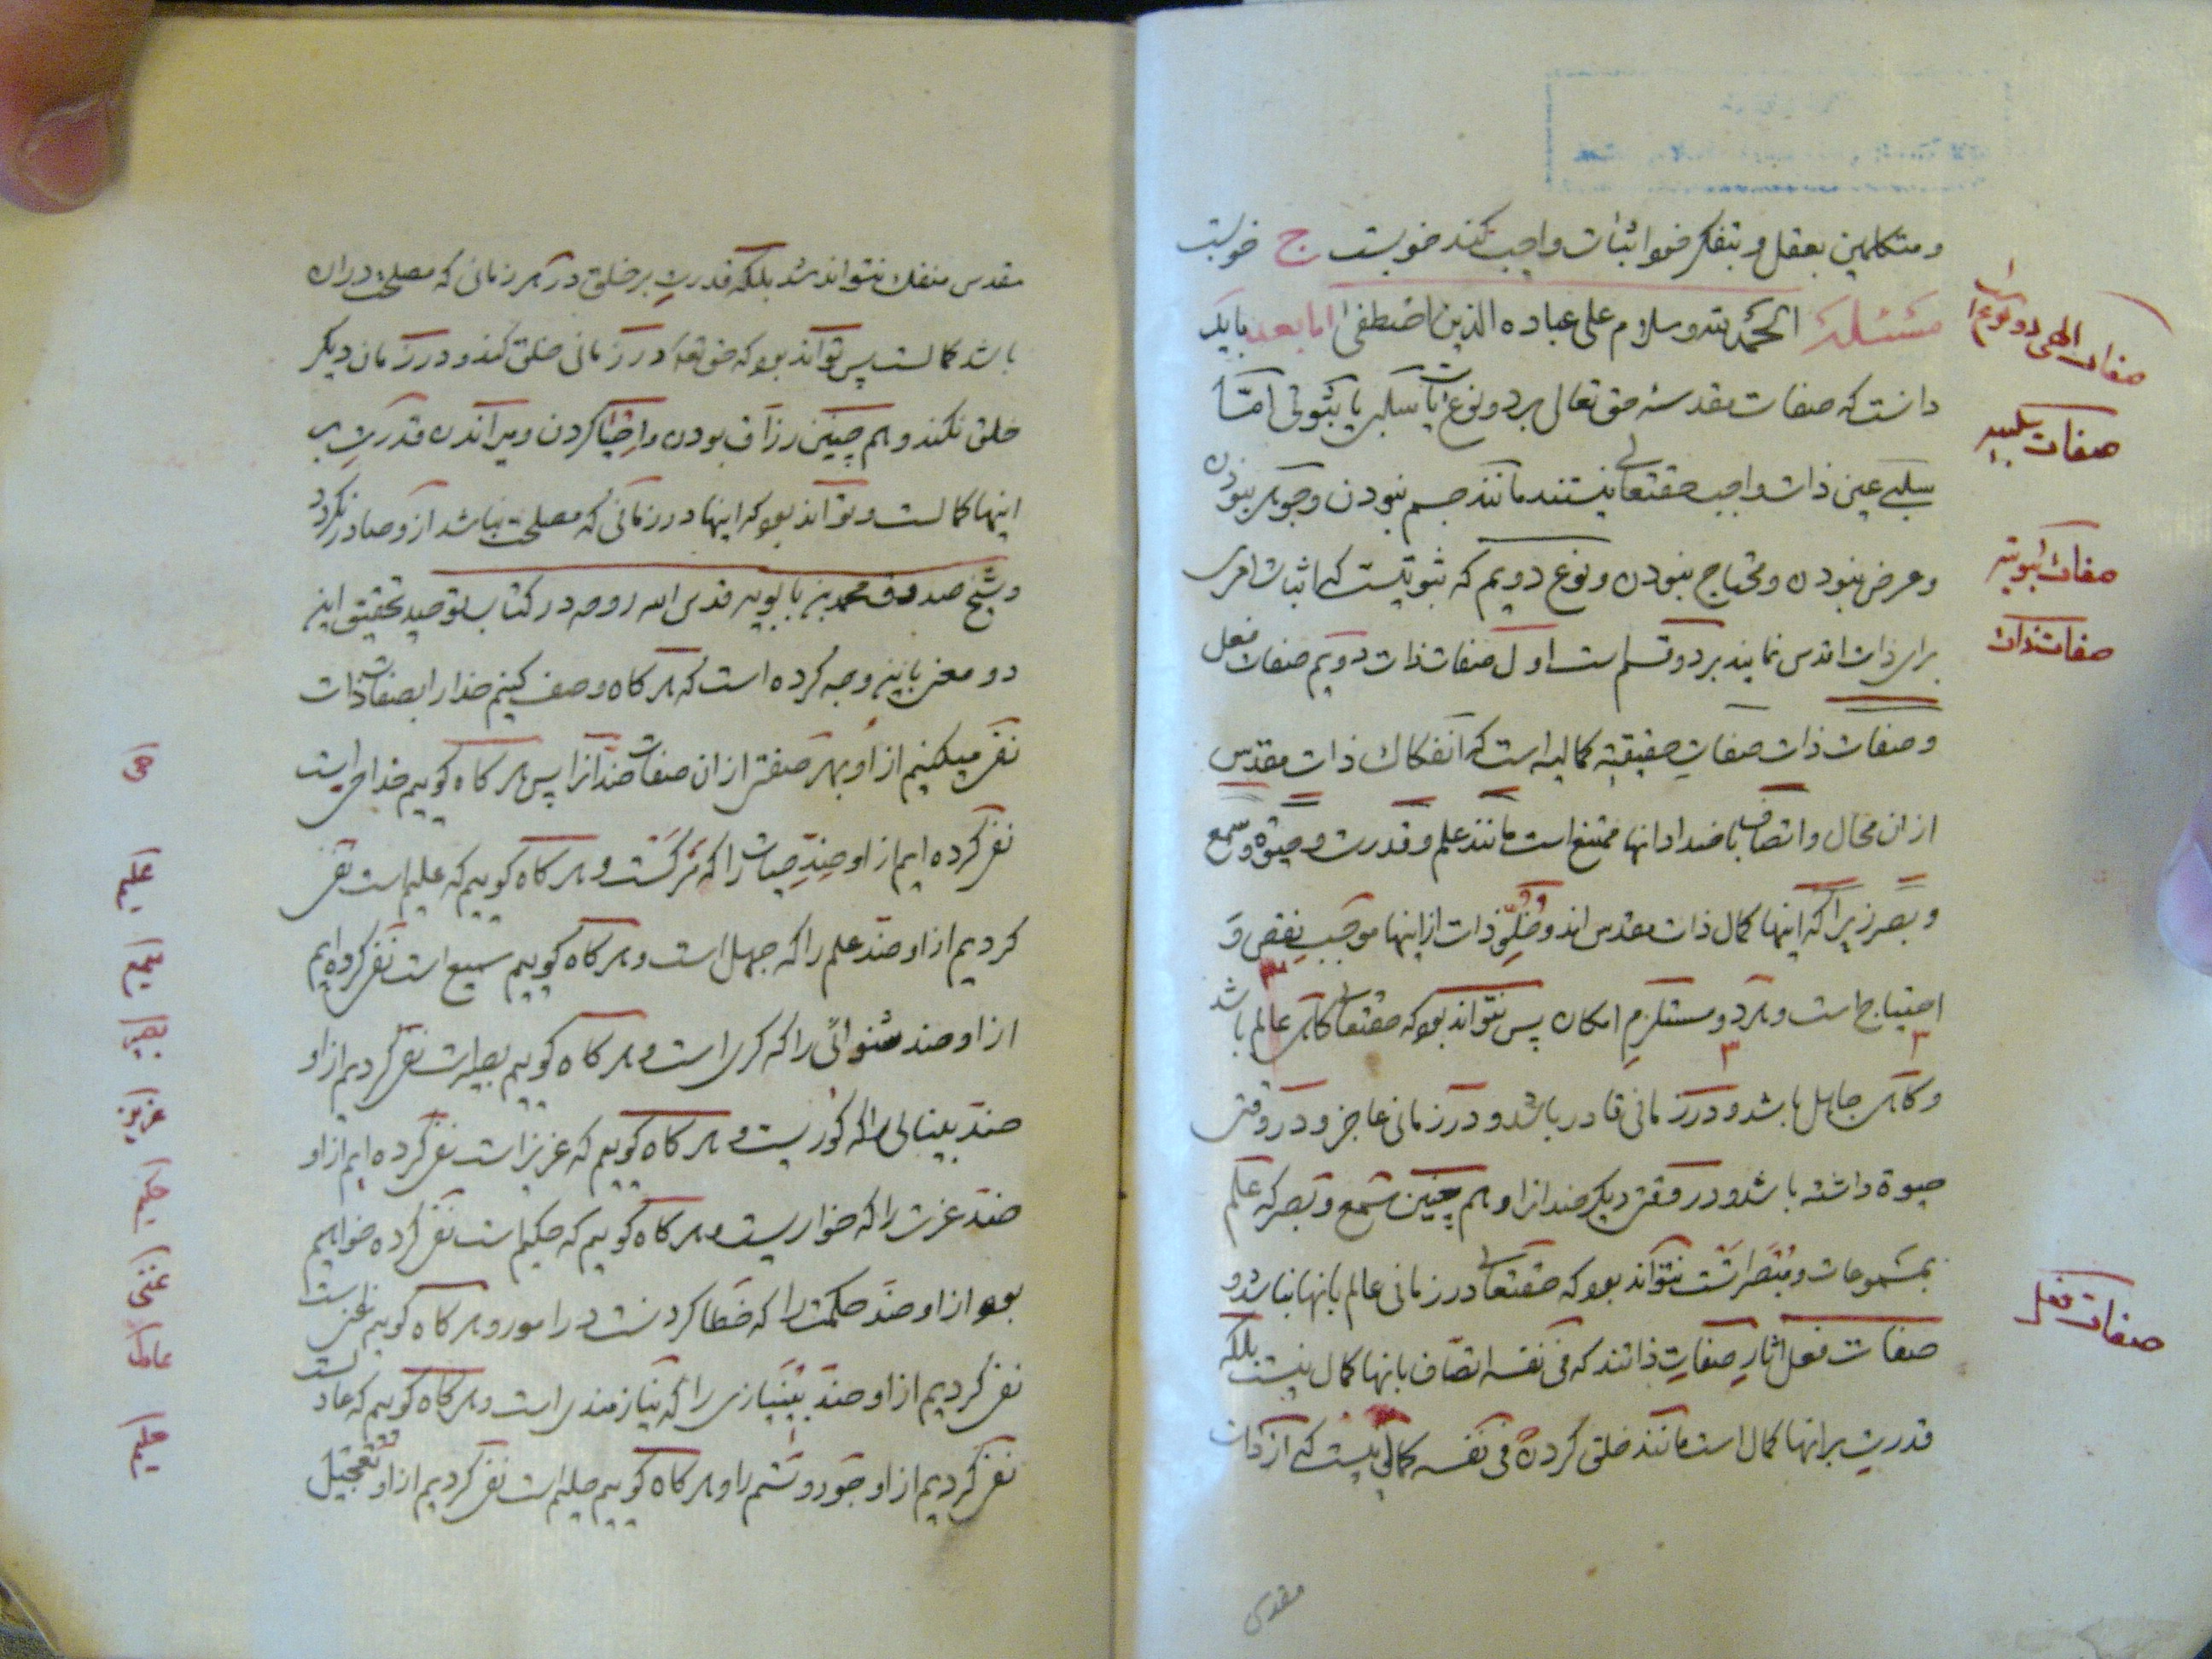 و متکلمین بعقل و بتفکر خود اثبات واجب کنند خوبست ج خوبست
مسئله الحمد لله و سلام علی عباده الذین اصطفی اما بعد باید
دانست که صفات مقدسهٔ حق تعالی بر دو نوع است یا سلبی یا ثبوتی امّا
سلبی عین ذات واجب حقتعالی نیستند مانند جسم نبودن و جوهر نبودن
و عرض نبودن و محتاج نبودن و نوع دویم که ثبوتیست که اثبات امری
برای ذات اقدس نمایند بر دو قسم است اول صفات ذات دویم صفات فعل
و صفات ذات صفات حقیقیه کمالیه است که انفکاک ذات مقدس
از ان محال و اتصاف باضداد انها ممتنع است مانند علم و قدرت و حیوة و سمع
و بصر زیرا که اینها کمال ذات مقدس اند و خلوّ ذات از اینها موجب نقص و
احتیاج است و هر دو مستلزم امکان پس نتواند بود که حقتعالی گاهی عالم باشد
و گاهی جاهل باشد و در زمانی قادر باشد و در زمانی عاجز و در وقتی
حیوة داشته باشد و در وقتی دیگر ضد انرا و هم چنین سمع و بصر که علم
بمسموعات و مبصراتست نتواند بود که حقتعالی در زمانی عالم بانها نباشد و
صفات فعل اثار صفات ذاتند که فی نفسه اتصاف بانها کمال نیست بلکه
قدرت بر انها کمال است مانند خلق کردن فی نفسه کمالی نیست که از ذات
مقدس
صفات الهی دو نوع است
صفات سلبیه
صفات ثبوتیه
صفات ذات
صفات فعل
مقدس منفک نتواند شد بلکه قدرت بر خلق در هر زمانی که مصلحت در ان
باشد کمالست پس تواند بود که حق تعالی در زمانی خلق کند و در زمان دیگر
خلق نکند و هم چنین رزاق بودن و احیا کردن و میراندن قدرت بر
اینها کمالست و تواند بود که اینها در زمانی که مصلحت نباشد از و صادر نگردد
و شیخ صدوق محمد بن بابویه قدس الله روحه در کتاب توحید تحقیق این
دو معنی باین وجه کرده است که هر گاه وصف کنیم خدا را بصفات ذات
نفی میکنیم از او بهر صفتی از ان صفات ضد انرا پس هر گاه گوییم خدا حی است
نفی کرده ایم از او ضد حیات را که مرگست و هر گاه گوییم که علیم است نفی
کردیم از او ضد علم را که جهل است و هر گاه گوییم سمیع است نفی کرده ایم
از او ضد شنوائی را که کری است و هر گاه گوییم بصیر است نفی کردیم از او
ضد بینائی را که کوریست و هر گاه گوییم که عزیز است نفی کرده ایم از او
ضد عزت را که خواریست و هر گاه گوییم که حکیم است نفی کرده خواهیم
بود از او ضد حکمت را که خطا کردنست در امور و هر گاه گوییم غنی است
نفی کردیم از او ضد بی نیازی را که نیازمندی است و هر گاه گوییم که عادلست
نفی کردیم از او جور و ستم را و هر گاه گوییم حلیم است نفی کردیم از او تعجیل
علیم
سمیع
بصیر
عزیز
حکیم
غنی
عادل
حلیم